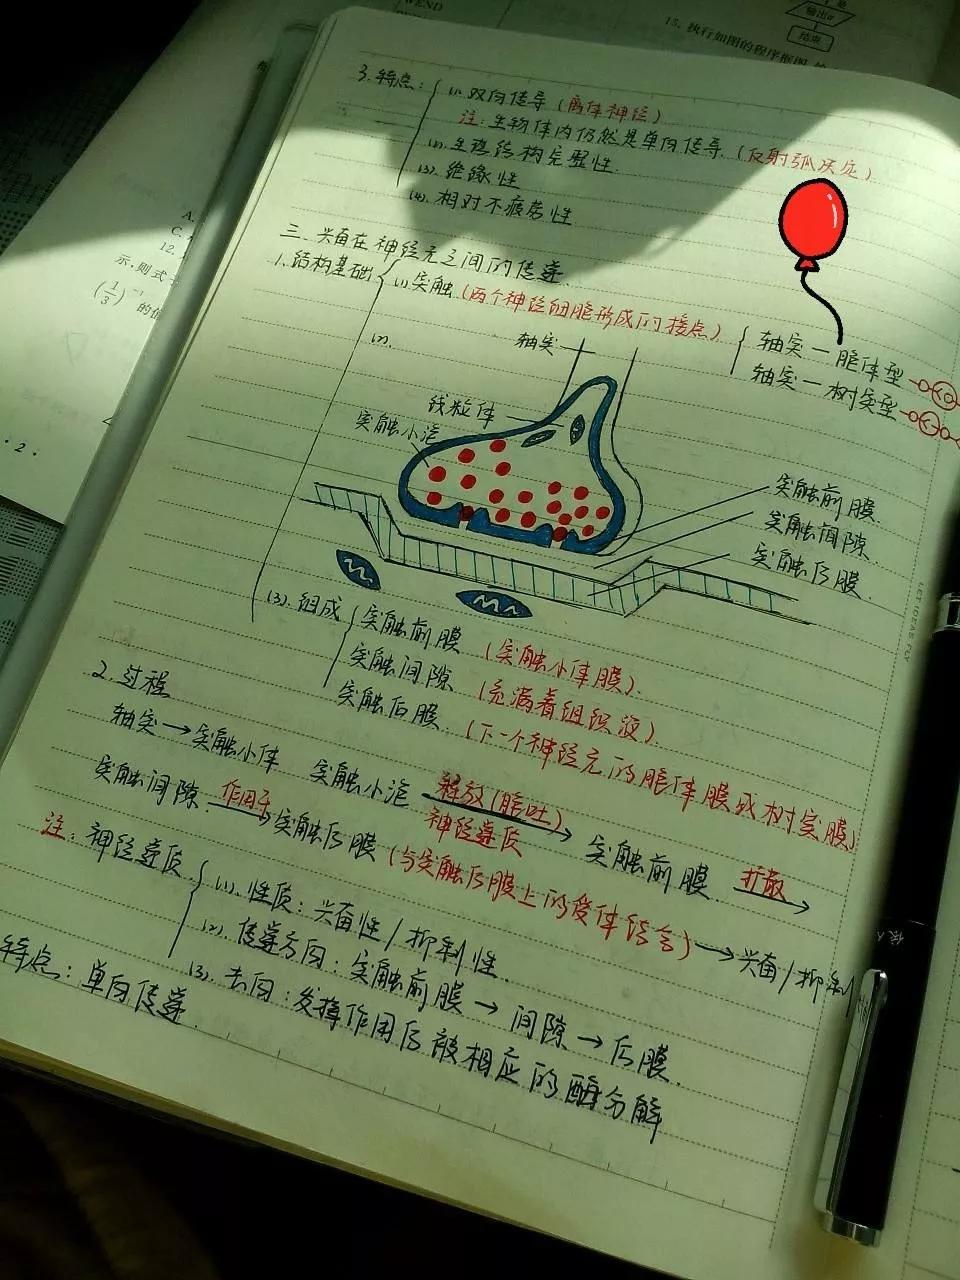 WEND
15. 执行如图的程序框图
输出
结束
3. 特点:
(1). 双向传导 (离体神经)
注: 生物体内仍然是单向传导. (反射弧决定)
(2). 生理结构完整性.
(3). 绝缘性
(4). 相对不疲劳性
三. 兴奋在神经元之间的传递
1. 结构基础
(1). 突触 (两个神经细胞形成的接点)
轴突—胞体型
轴突—树突型
(2).
轴突
线粒体
突触小泡
突触前膜
突触间隙
突触后膜
(3). 组成
突触前膜 (突触小体膜).
突触间隙 (充满着组织液)
突触后膜. (下一个神经元的胞体膜或树突膜)
2. 过程
轴突→突触小体 突触小泡 释放(胞吐) 神经递质 → 突触前膜 扩散 →
突触间隙 作用于 → 突触后膜 (与突触后膜上的受体结合) → 兴奋/抑制
注: 神经递质
(1). 性质: 兴奋性/抑制性
(2). 传递方向: 突触前膜 → 间隙 → 后膜.
(3). 去向: 发挥作用后被相应的酶分解
特点: 单向传递.
A.
C.
12.
示,则式
(1/3)⁻¹ 的值
· 2 ·
LET IDEAS FLY